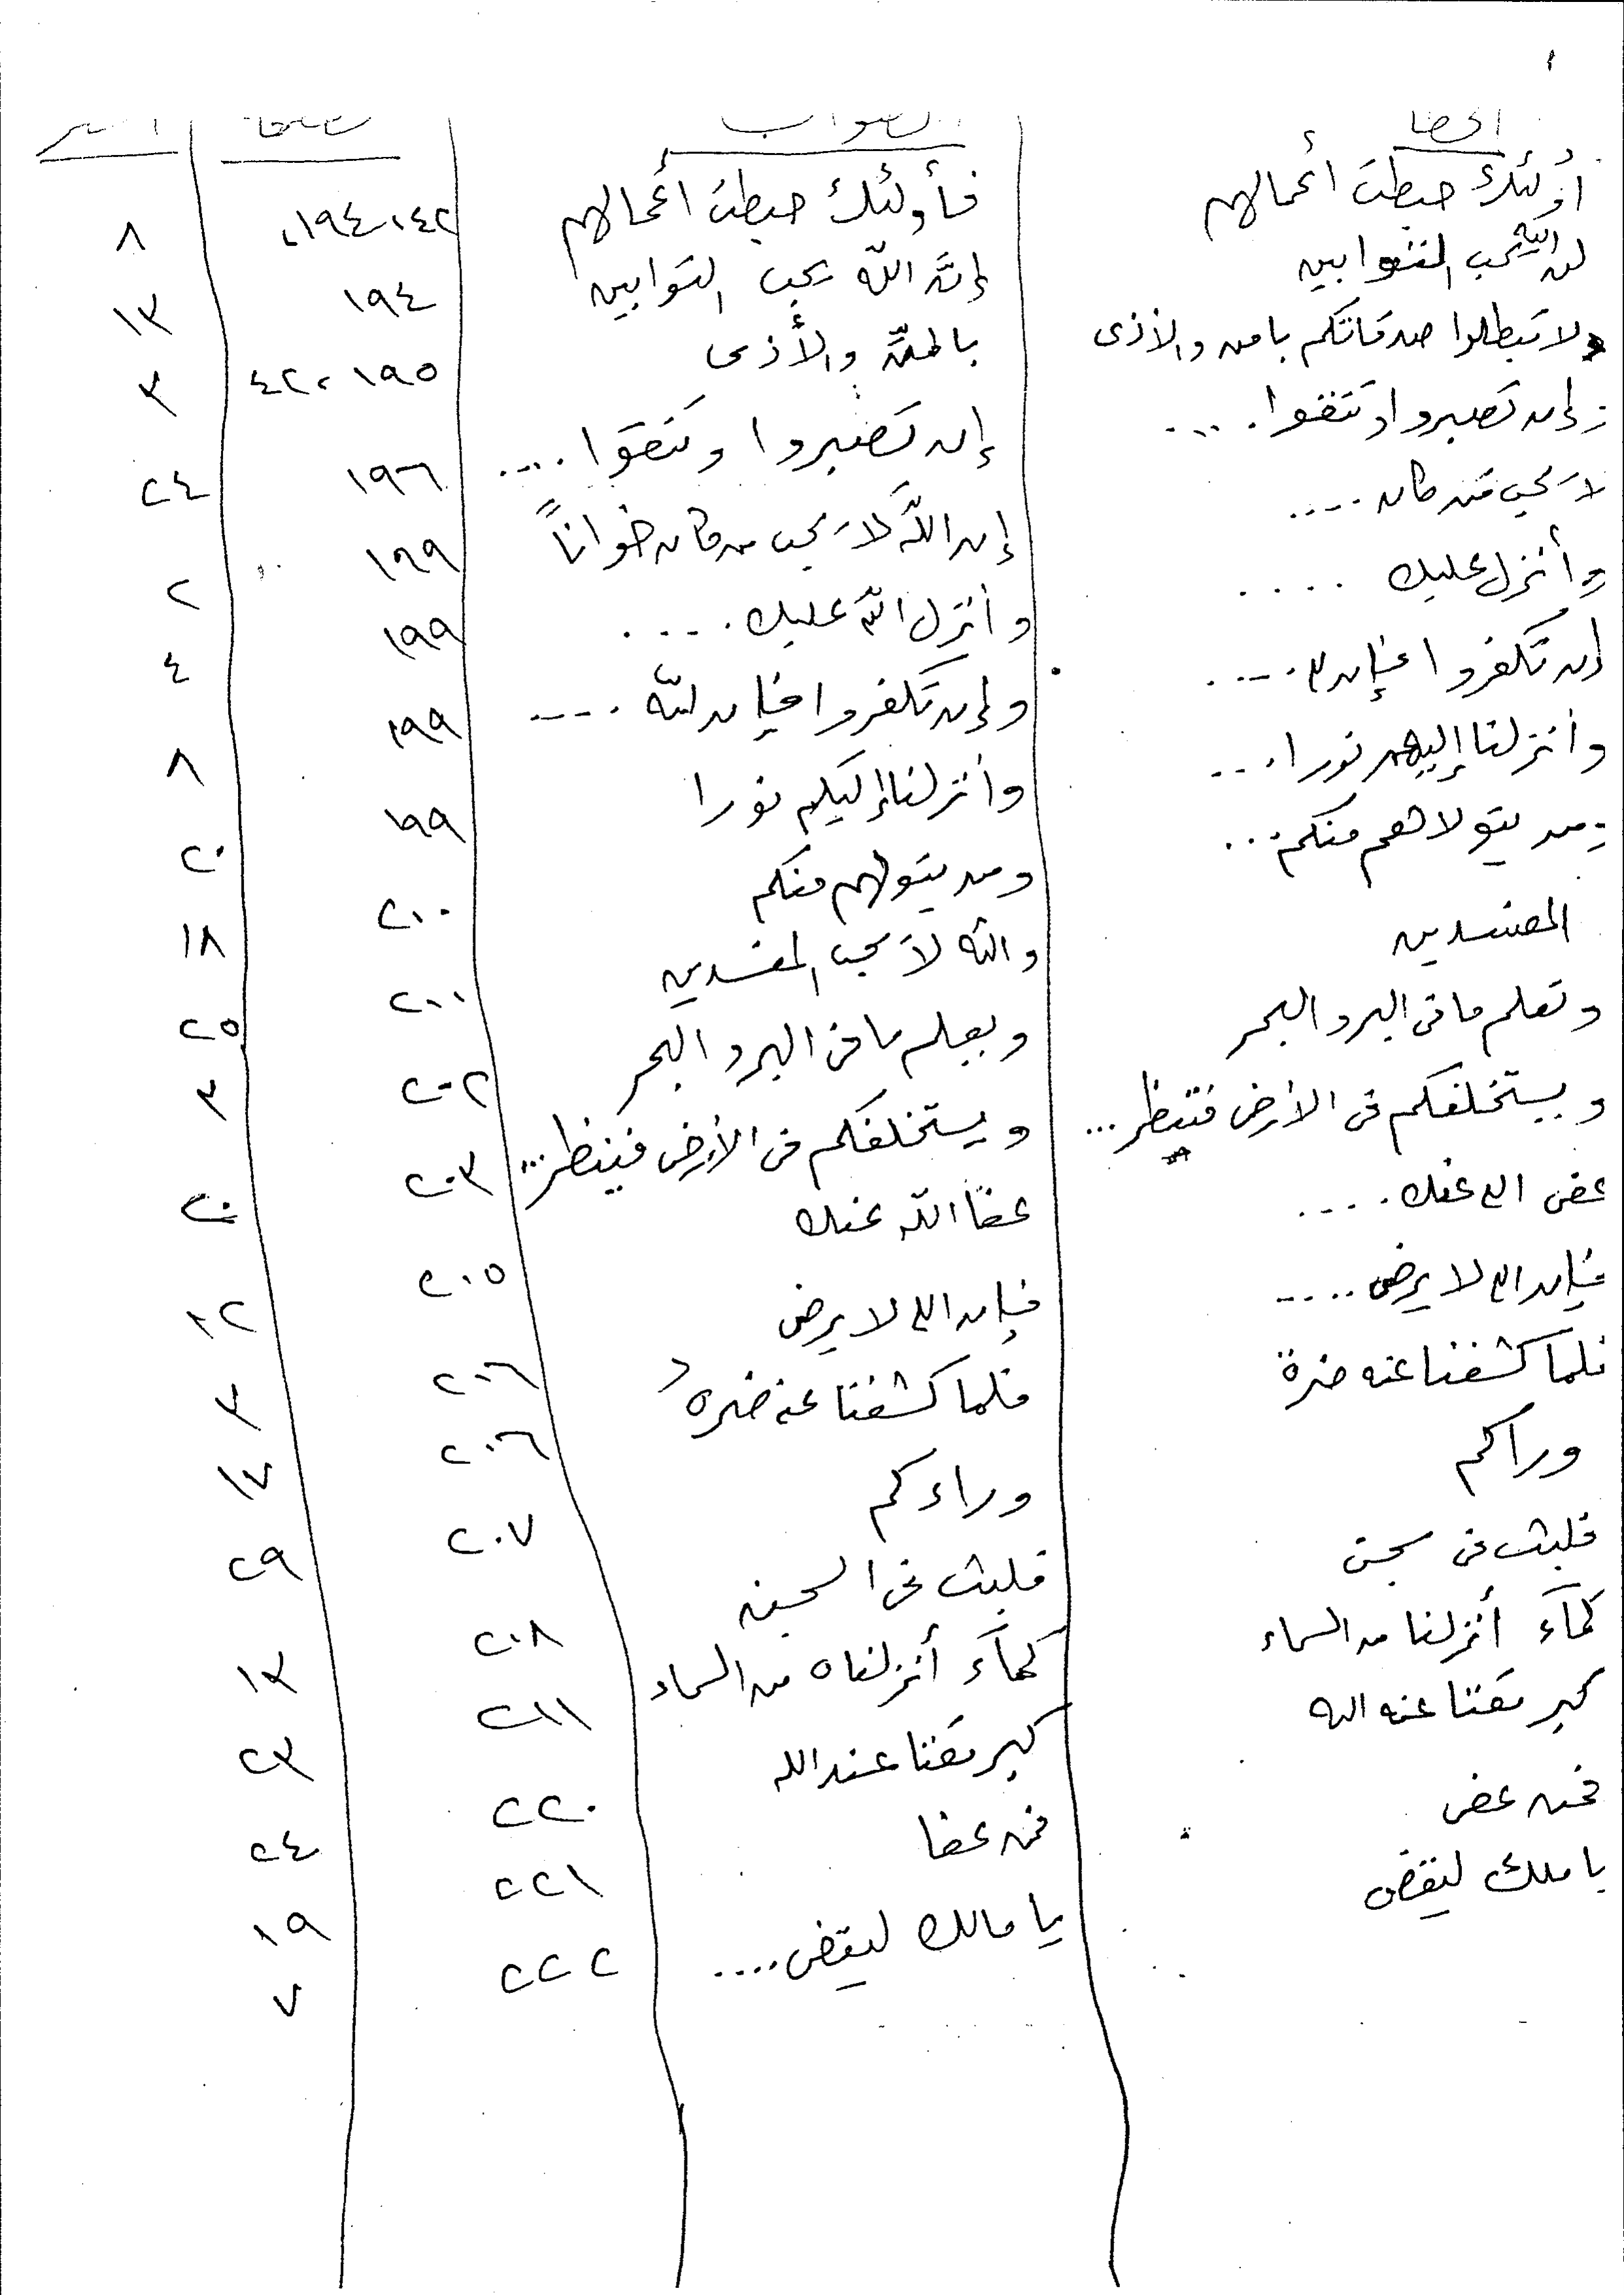 ١
الخطأ الصواب الصفحة السطر
أولئك حبطت أعمالهم فأولئك حبطت أعمالهم ١٩٤،٤٢، ٨
الله يحب التوابين إنَّ اللّه يحب التوابين ١٩٤ ١٣
ولا تبطلوا صدقاتكم بامن والأذى بالمنّ والأذى ١٩٥، ٤٢ ٣
وإن تصبروا وتتقوا .... إن تصبروا وتتقوا .... ١٩٦ ٢٤
لا يحب من كان .... إن اللّه لا يحب من كان خواناً ١٩٩ ٢
وأنزل عليك .... وأنزل اللّه عليك .... ١٩٩ ٤
إن تكفروا فإن لا .... وإن تكفروا فإن للّه .... ١٩٩ ٨
وأنزلنا إليهم نورا ... وأنزلنا إليكم نورا ١٩٩ ٢٠
ومن يتولاهم منكم ... ومن يتولهم منكم ٢٠٠ ١٨
المفسدين والله لا يحب المفسدين ٢٠٠ ٢٥
وتعلم ما فى البر والبحر ويعلم ما فى البر والبحر ٢٠٢ ٣
ويستخلفكم فى الأرض فتنظر ... ويستخلفكم فى الأرض فينظر ... ٢٠٣ ٢٠
عفى الله عنك .... عفا اللّه عنك ٢٠٥ ١٢
فإن الله لا يرضى .... فإن الله لا يرضى ٢٠٦ ٣
فلما كشفنا عنه ضرة فلما كشفنا عنه ضره ٢٠٦ ١٧
وراكم وراءكم ٢٠٧ ٢٩
فلبث فى سجن فلبث فى السجن ٢٠٨ ١٣
كمآء أنزلنا من السماء كمآء أنزلناه من السماء ٢١١ ٢٣
كبر مقتا عنه الله كبر مقتا عند الله ٢٢٠ ٢٤
فمن عفى فمن عفا ٢٢١ ١٩
يا ملك ليقض يا مالك ليقض .... ٢٢٢ ٧